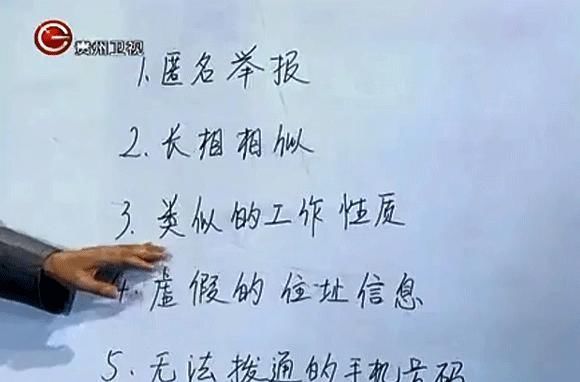 贵州卫视
1. 匿名举报
2. 长相相似
3. 类似的工作性质
4. 虚假的住址信息
5. 无法拨通的手机号码